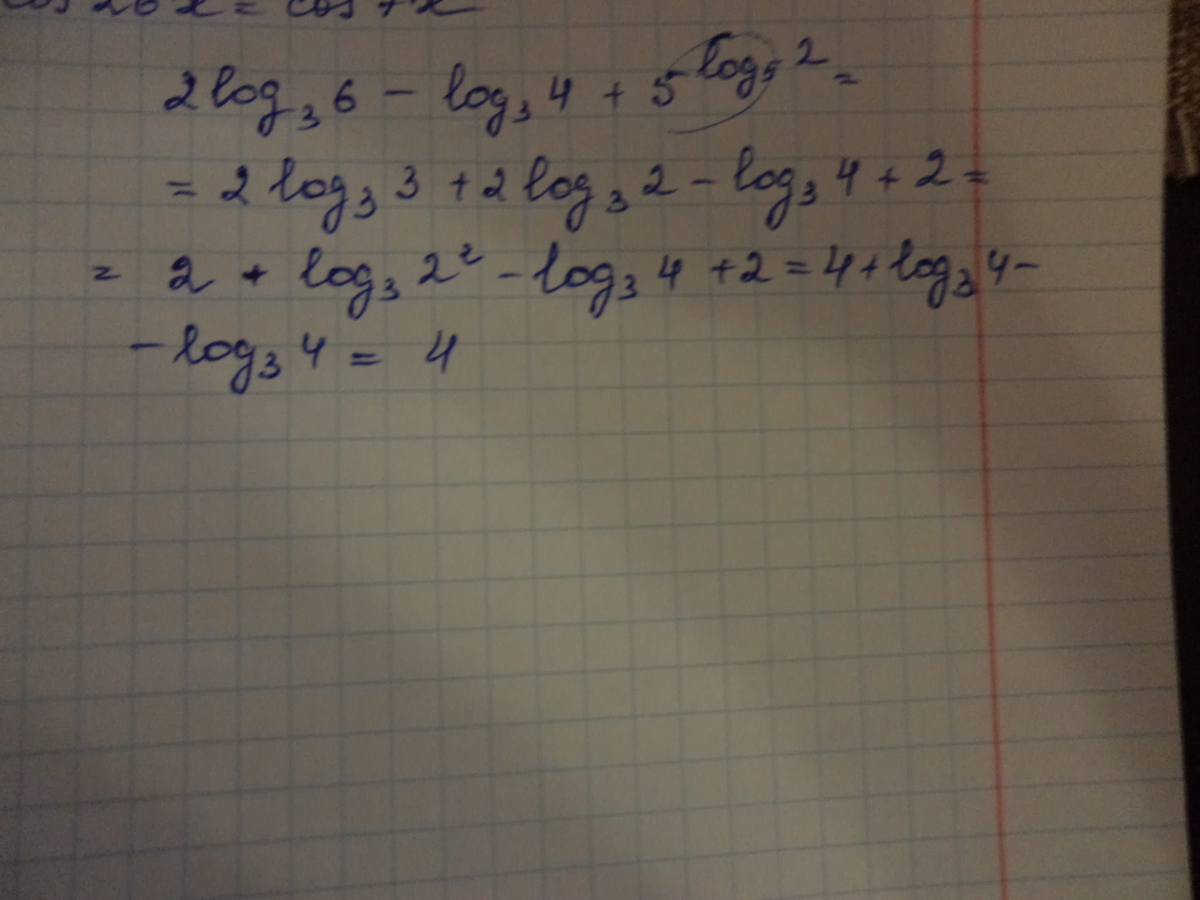 cos 26x = cos 7x
2 log₃ 6 - log₃ 4 + 5^(log₅ 2) =
= 2 log₃ 3 + 2 log₃ 2 - log₃ 4 + 2 =
= 2 + log₃ 2² - log₃ 4 + 2 = 4 + log₃ 4 -
- log₃ 4 = 4